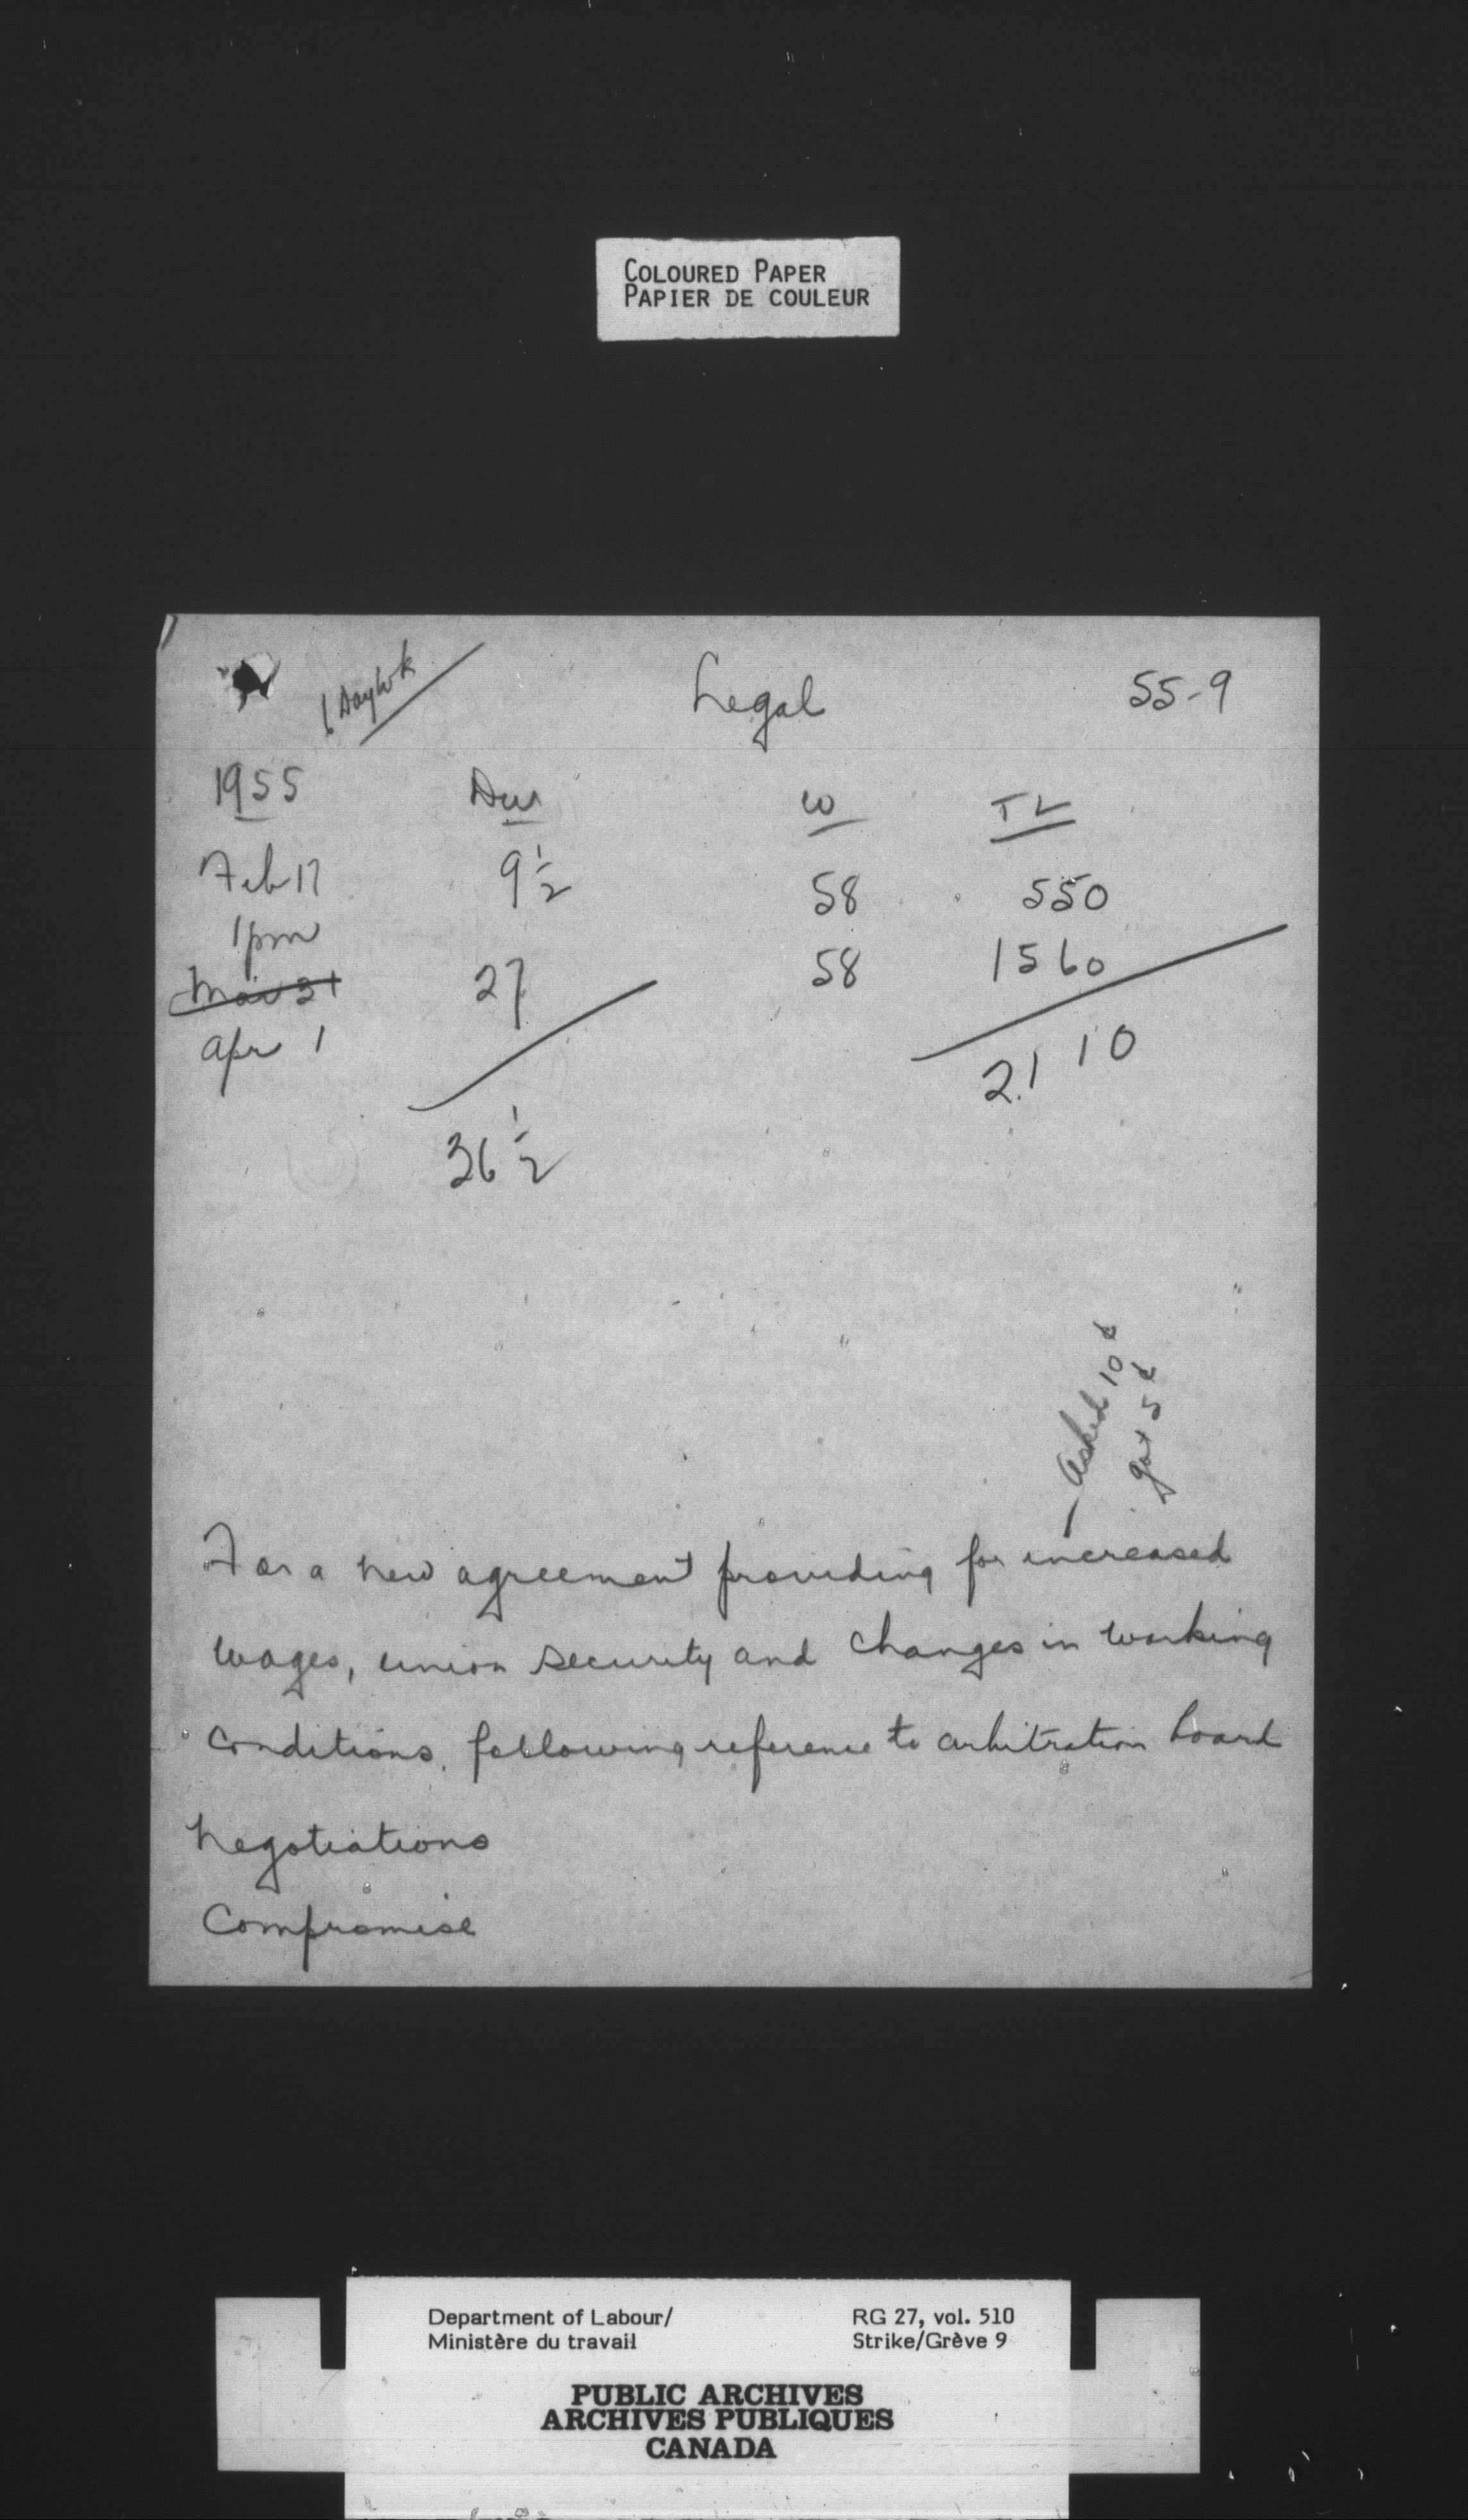 COLOURED PAPER
PAPIER DE COULEUR
6 Day Wk
Legal 55-9
1955 Dur W TL
Feb 17 9 1/2 58 550
1pm
Mar 31 27 58 1560
Apr 1
2110
36 1/2
Asked 10¢
got 5¢
For a new agreement providing for increased
wages, union security and changes in working
conditions, following reference to arbitration board
Negotiations
Compromise
Department of Labour/
Ministère du travail
RG 27, vol. 510
Strike/Grève 9
PUBLIC ARCHIVES
ARCHIVES PUBLIQUES
CANADA